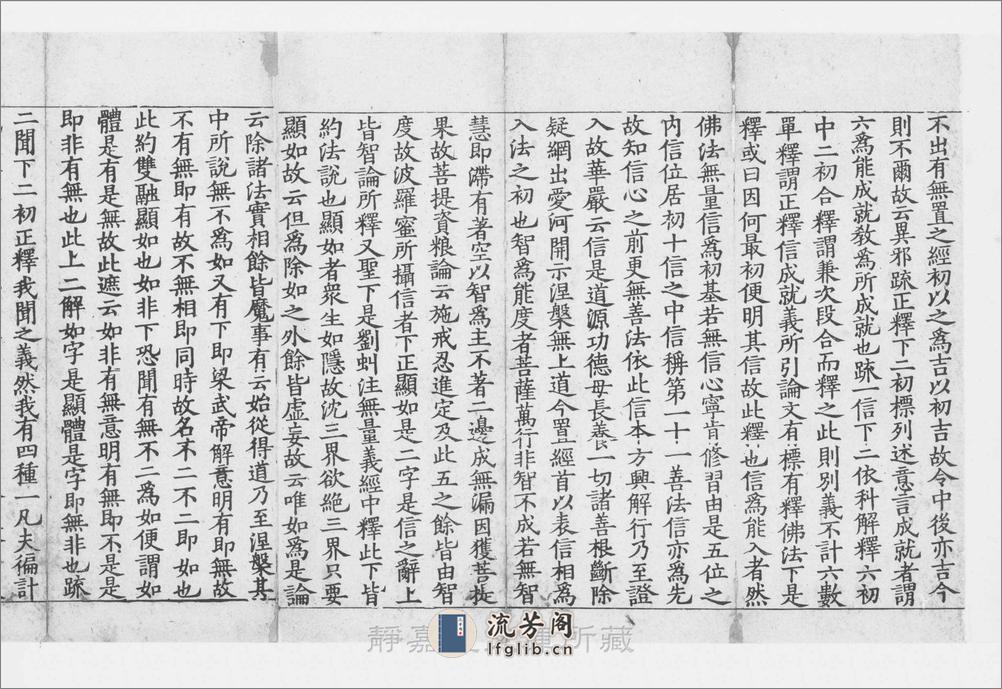 不出有無置之經初以之為吉以初吉故令中後亦吉今
則不爾故云異邪䟽正釋下二初標列述意言成就者謂
六為能成就教為所成就也䟽一信下二依科解釋六初
中二初合釋謂兼次段合而釋之此則別義不計六數
單釋謂正釋信成就義所引論文有標有釋佛法下是
釋或曰因何最初便明其信故此釋也信為能入者然
佛法無量信為初基若無信心寧肯修習由是五位之
內信位居初十信之中信稱第一十一善法信亦為先
故知信心之前更無善法依此信本方興解行乃至證
入故華嚴云信是道源功德母長養一切諸善根斷除
疑網出愛河開示涅槃無上道今置經首以表信相為
入法之初也智為能度者菩薩萬行非智不成若無智
慧即滯有著空以智為主不著二邊成無漏因獲菩提
果故菩提資粮論云施戒忍進定及此五之餘皆由智
度故波羅蜜所攝信者下正顯如是二字是信之辭上
皆智論所釋又聖下是劉虯注無量義經中釋此下皆
約法說也顯如者衆生如隱故沈三界欲絕三界只要
顯如故云但為除如之外餘皆虛妄故云唯如為是論
云除諸法實相餘皆魔事有云始從得道乃至涅槃其
中所說無不為如又有下即梁武帝解意明有即無故
不有無即有故不無相即同時故名不二不二即如也
此約雙融顯如也如非下恐聞有無不二為如便謂如
體是有是無故此遮云如非有無意明有無即不是是
即非有無也此上二解如字是顯體是字即無非也䟽
二聞下二初正釋我聞之義然我有四種一凡夫徧計
靜嘉 所藏
流芳阁
lfglib.cn